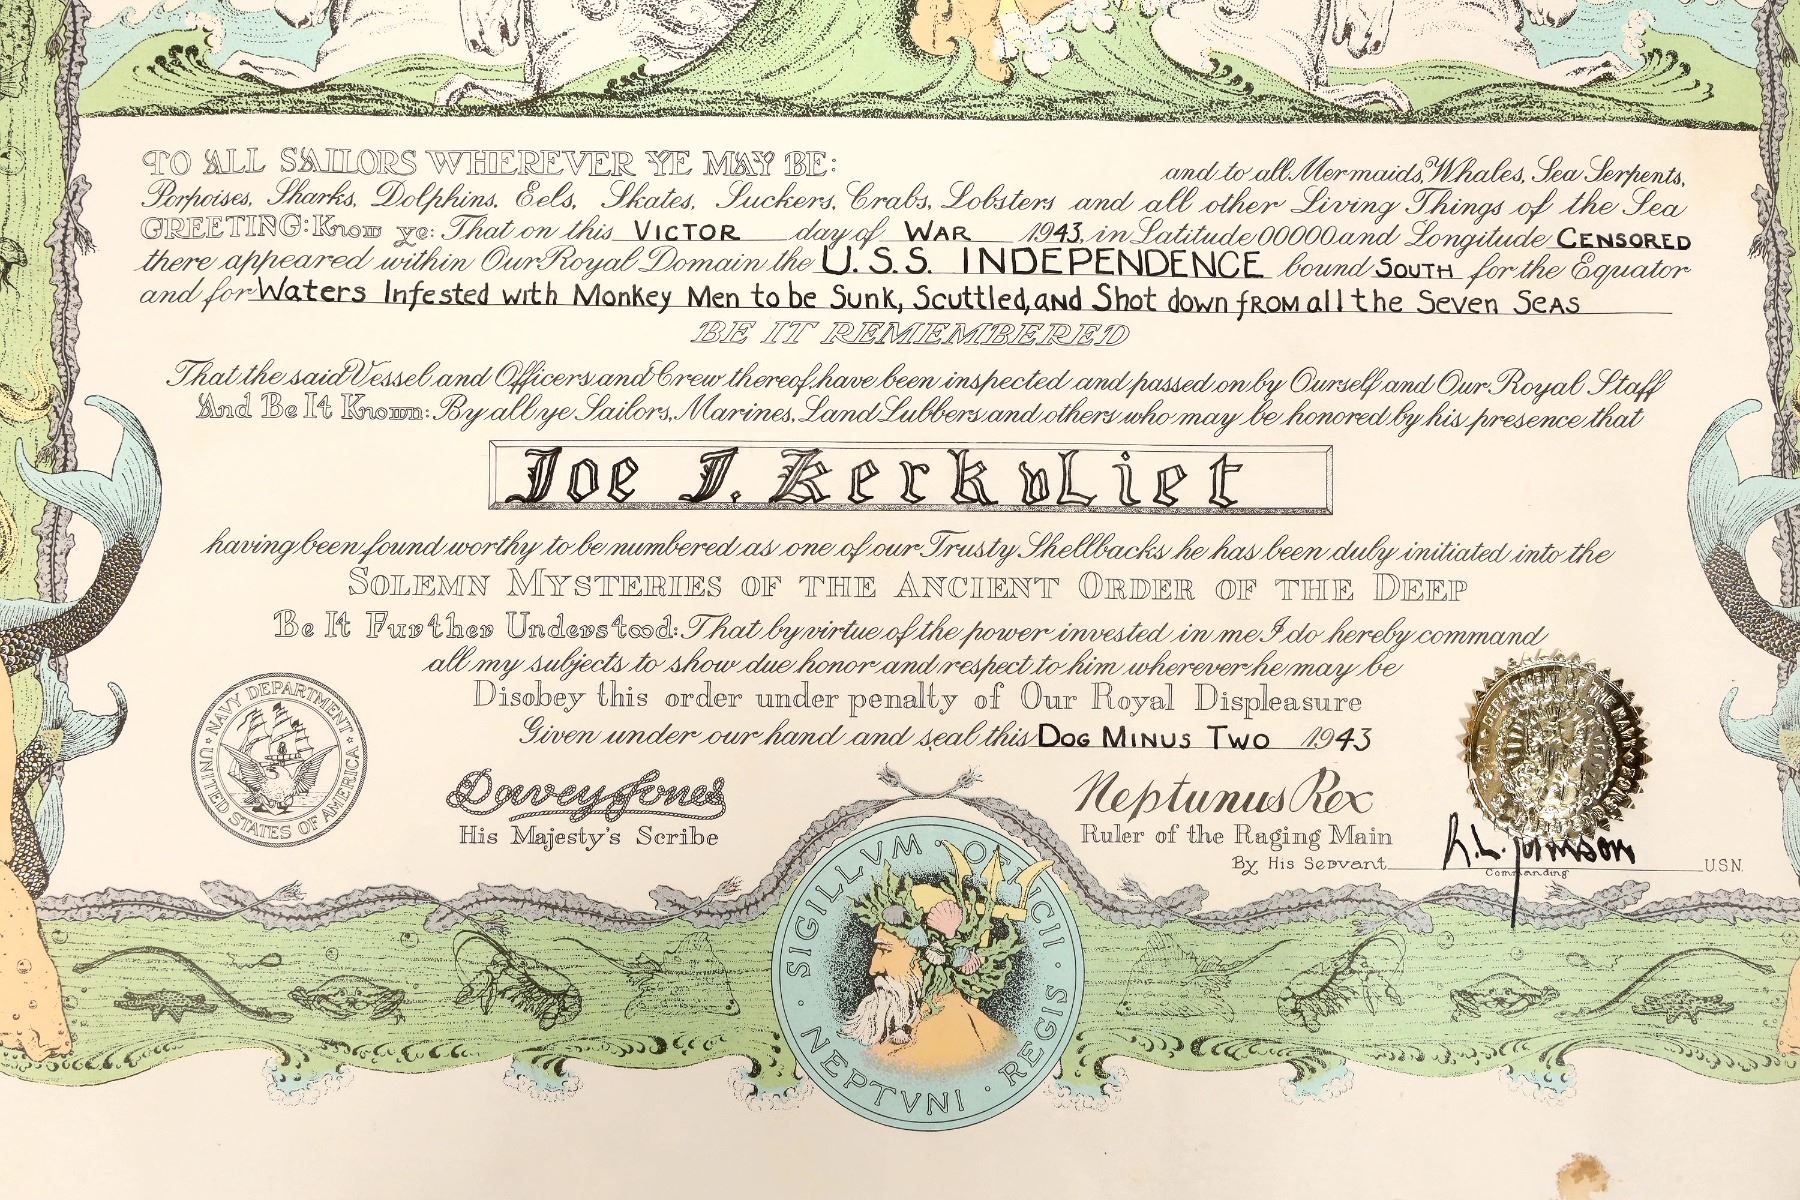 TO ALL SAILORS WHEREVER YE MAY BE: and to all Mermaids, Whales, Sea Serpents,
Porpoises, Sharks, Dolphins, Eels, Skates, Suckers, Crabs, Lobsters and all other Living Things of the Sea
GREETING: Know ye: That on this VICTOR day of WAR 1943, in Latitude 00000 and Longitude CENSORED
there appeared within Our Royal Domain the U.S.S. INDEPENDENCE bound SOUTH for the Equator
and for Waters Infested with Monkey Men to be Sunk, Scuttled, and Shot down from all the Seven Seas
BE IT REMEMBERED
That the said Vessel and Officers and Crew thereof, have been inspected and passed on by Ourself and Our Royal Staff
And Be It Known: By all ye Sailors, Marines, Land Lubbers and others who may be honored by his presence that
Joe J. KerkvLiet
having been found worthy to be numbered as one of our Trusty Shellbacks he has been duly initiated into the
SOLEMN MYSTERIES OF THE ANCIENT ORDER OF THE DEEP
Be It Further Understood: That by virtue of the power invested in me I do hereby command
all my subjects to show due honor and respect to him wherever he may be
Disobey this order under penalty of Our Royal Displeasure
Given under our hand and seal this DOG MINUS TWO 1943
NAVY DEPARTMENT
UNITED STATES OF AMERICA
Davey Jones
His Majesty's Scribe
Neptunus Rex
Ruler of the Raging Main
By His Servant R.L. Johnson USN.
Commanding
DEPARTMENT OF THE NAVY
SIGILLVM · OFFICII
NEPTVNI · REGIS